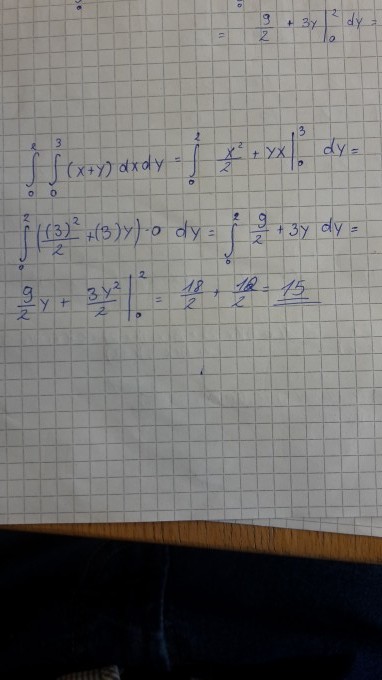 = 9/2 + 3y |₀² dy =
∫₀² ∫₀³ (x+y) dx dy = ∫₀² x²/2 + yx |₀³ dy =
∫₀² ((3)²/2 + (3)y) - 0 dy = ∫₀² 9/2 + 3y dy =
9/2 y + 3y²/2 |₀² = 18/2 + 12/2 = 15